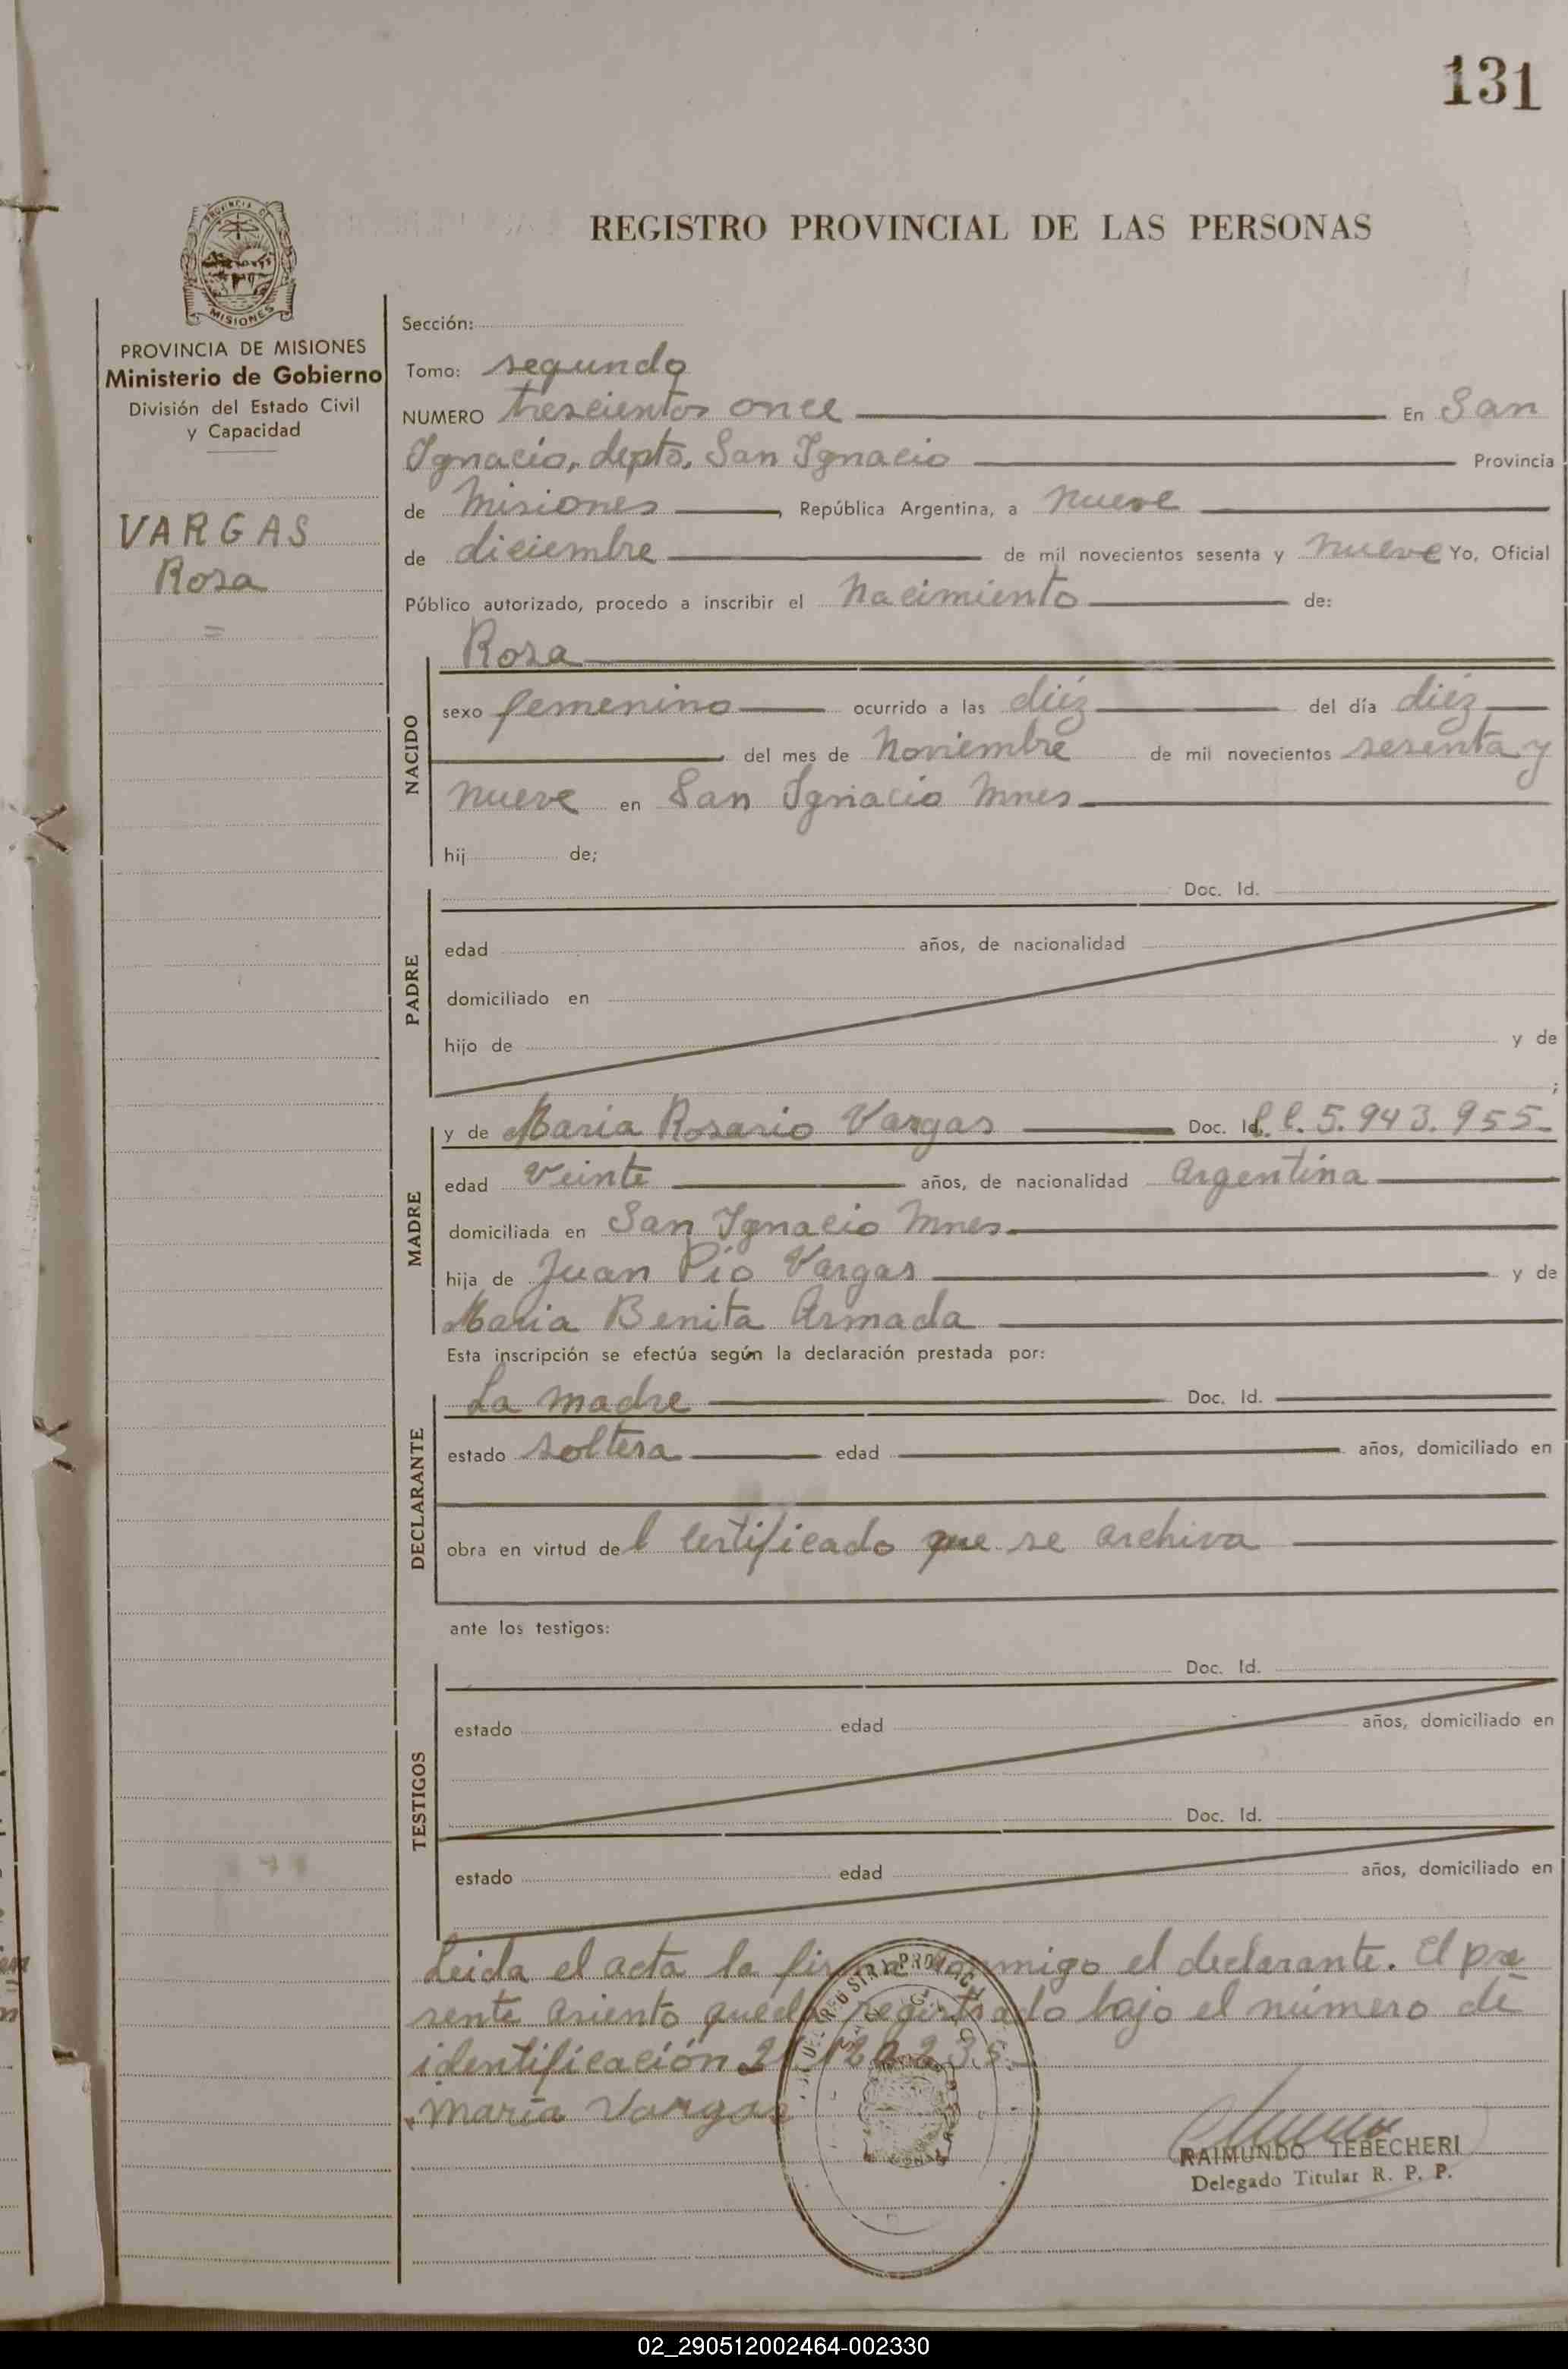 131
REGISTRO PROVINCIAL DE LAS PERSONAS
PROVINCIA DE
MISIONES
PROVINCIA DE MISIONES
Ministerio de Gobierno
División del Estado Civil
y Capacidad
VARGAS
Rosa
=
Sección:
Tomo: segundo
NUMERO trescientos once En San
Ignacio, depto. San Ignacio Provincia
de Misiones, República Argentina, a nueve
de diciembre de mil novecientos sesenta y nueve Yo, Oficial
Público autorizado, procedo a inscribir el nacimiento de:
NACIDO
Rosa
sexo femenino ocurrido a las diéz del día diéz
del mes de Noviembre de mil novecientos sesenta y
nueve en San Ignacio Mnes
hij de;
PADRE
Doc. Id.
edad años, de nacionalidad
domiciliado en
hijo de y de
;
MADRE
y de Maria Rosario Vargas Doc. Id. L.C. 5.943.955
edad veinte años, de nacionalidad Argentina
domiciliada en San Ignacio Mnes
hija de Juan Pio Vargas y de
Maria Benita Armada
Esta inscripción se efectúa según la declaración prestada por:
DECLARANTE
La madre Doc. Id.
estado soltera edad años, domiciliado en
obra en virtud del certificado que se archiva
ante los testigos:
TESTIGOS
Doc. Id.
estado edad años, domiciliado en
Doc. Id.
estado edad años, domiciliado en
Leida el acta la firma conmigo el declarante. El pre
sente asiento queda registrado bajo el número de
identificación
maria Vargas
RAIMUNDO TEBECHERI
Delegado Titular R. P. P.
02_290512002464-002330